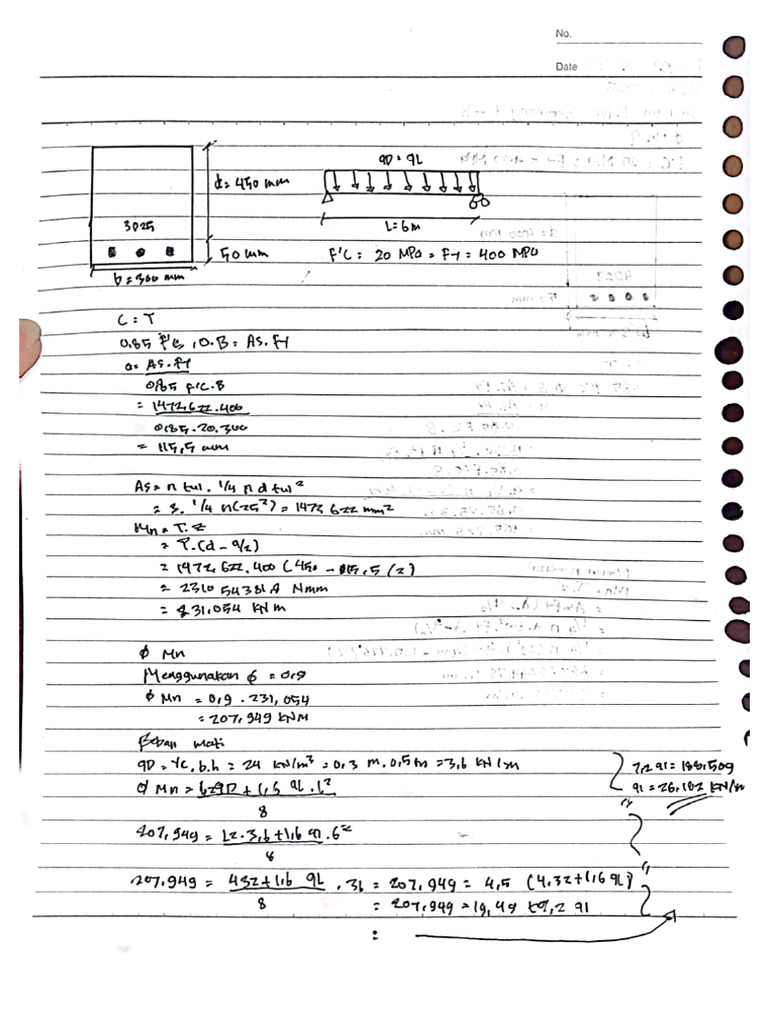 No.
Date
d = 450 mm
qD = qL
L = 6 m
3D25
50 mm
F'C = 20 MPa = FY = 400 MPa
b = 300 mm
C = T
0.85 F'c . a . B = As . fy
a = As . fy
0,85 F'C . B
= 1472,622 . 400
0,85 . 20 . 300
= 115,5 mm
As = n tul . 1/4 π d tul²
= 3 . 1/4 π (25²) = 1472 622 mm²
Mn = T . Z
= T . (d - a/2)
= 1472,622 . 400 (450 - 115,5 / 2)
= 2310 54381,8 Nmm
= 231,054 kNm
φ Mn
Menggunakan φ = 0,9
φ Mn = 0,9 . 231,054
= 207,949 kNM
Beban mati
qD = γc . b . h = 24 kN/m³ = 0,3 m . 0,5 m = 3,6 kN/m
7,2 ql = 188,509
ql = 26,182 kN/m
φ Mn = 1,2 qD + 1,6 qL . L²
8
207,949 = 1,2 . 3,6 + 1,6 ql . 6²
8
207,949 = 4,32 + 1,6 qL . 36 = 207,949 = 4,5 (4,32 + 1,6 qL)
8
= 207,949 = 19,49 + 7,2 ql
=